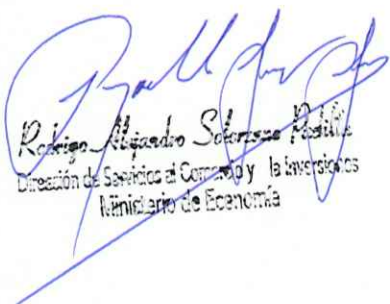 Rodrigo Alejandro Solorzano Padilla
Dirección de Servicios al Comercio y la Inversiones
Ministerio de Economía